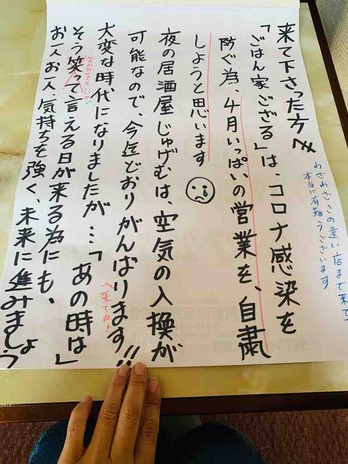 来て下さった方へ
本当に有難うございます
「ごはん家ござる」は、コロナ感染を
防ぐ為、4月いっぱいの営業を、自粛
しようと思います
夜の居酒屋じゅげむは、空気の入換が
可能なので、今迄どおりがんばります!!
来てね!
大変な時代になりましたが…「あの時は」
そう笑って言える日が来る為にも、
お一人お一人、気持ちを強く、未来に進みましょう